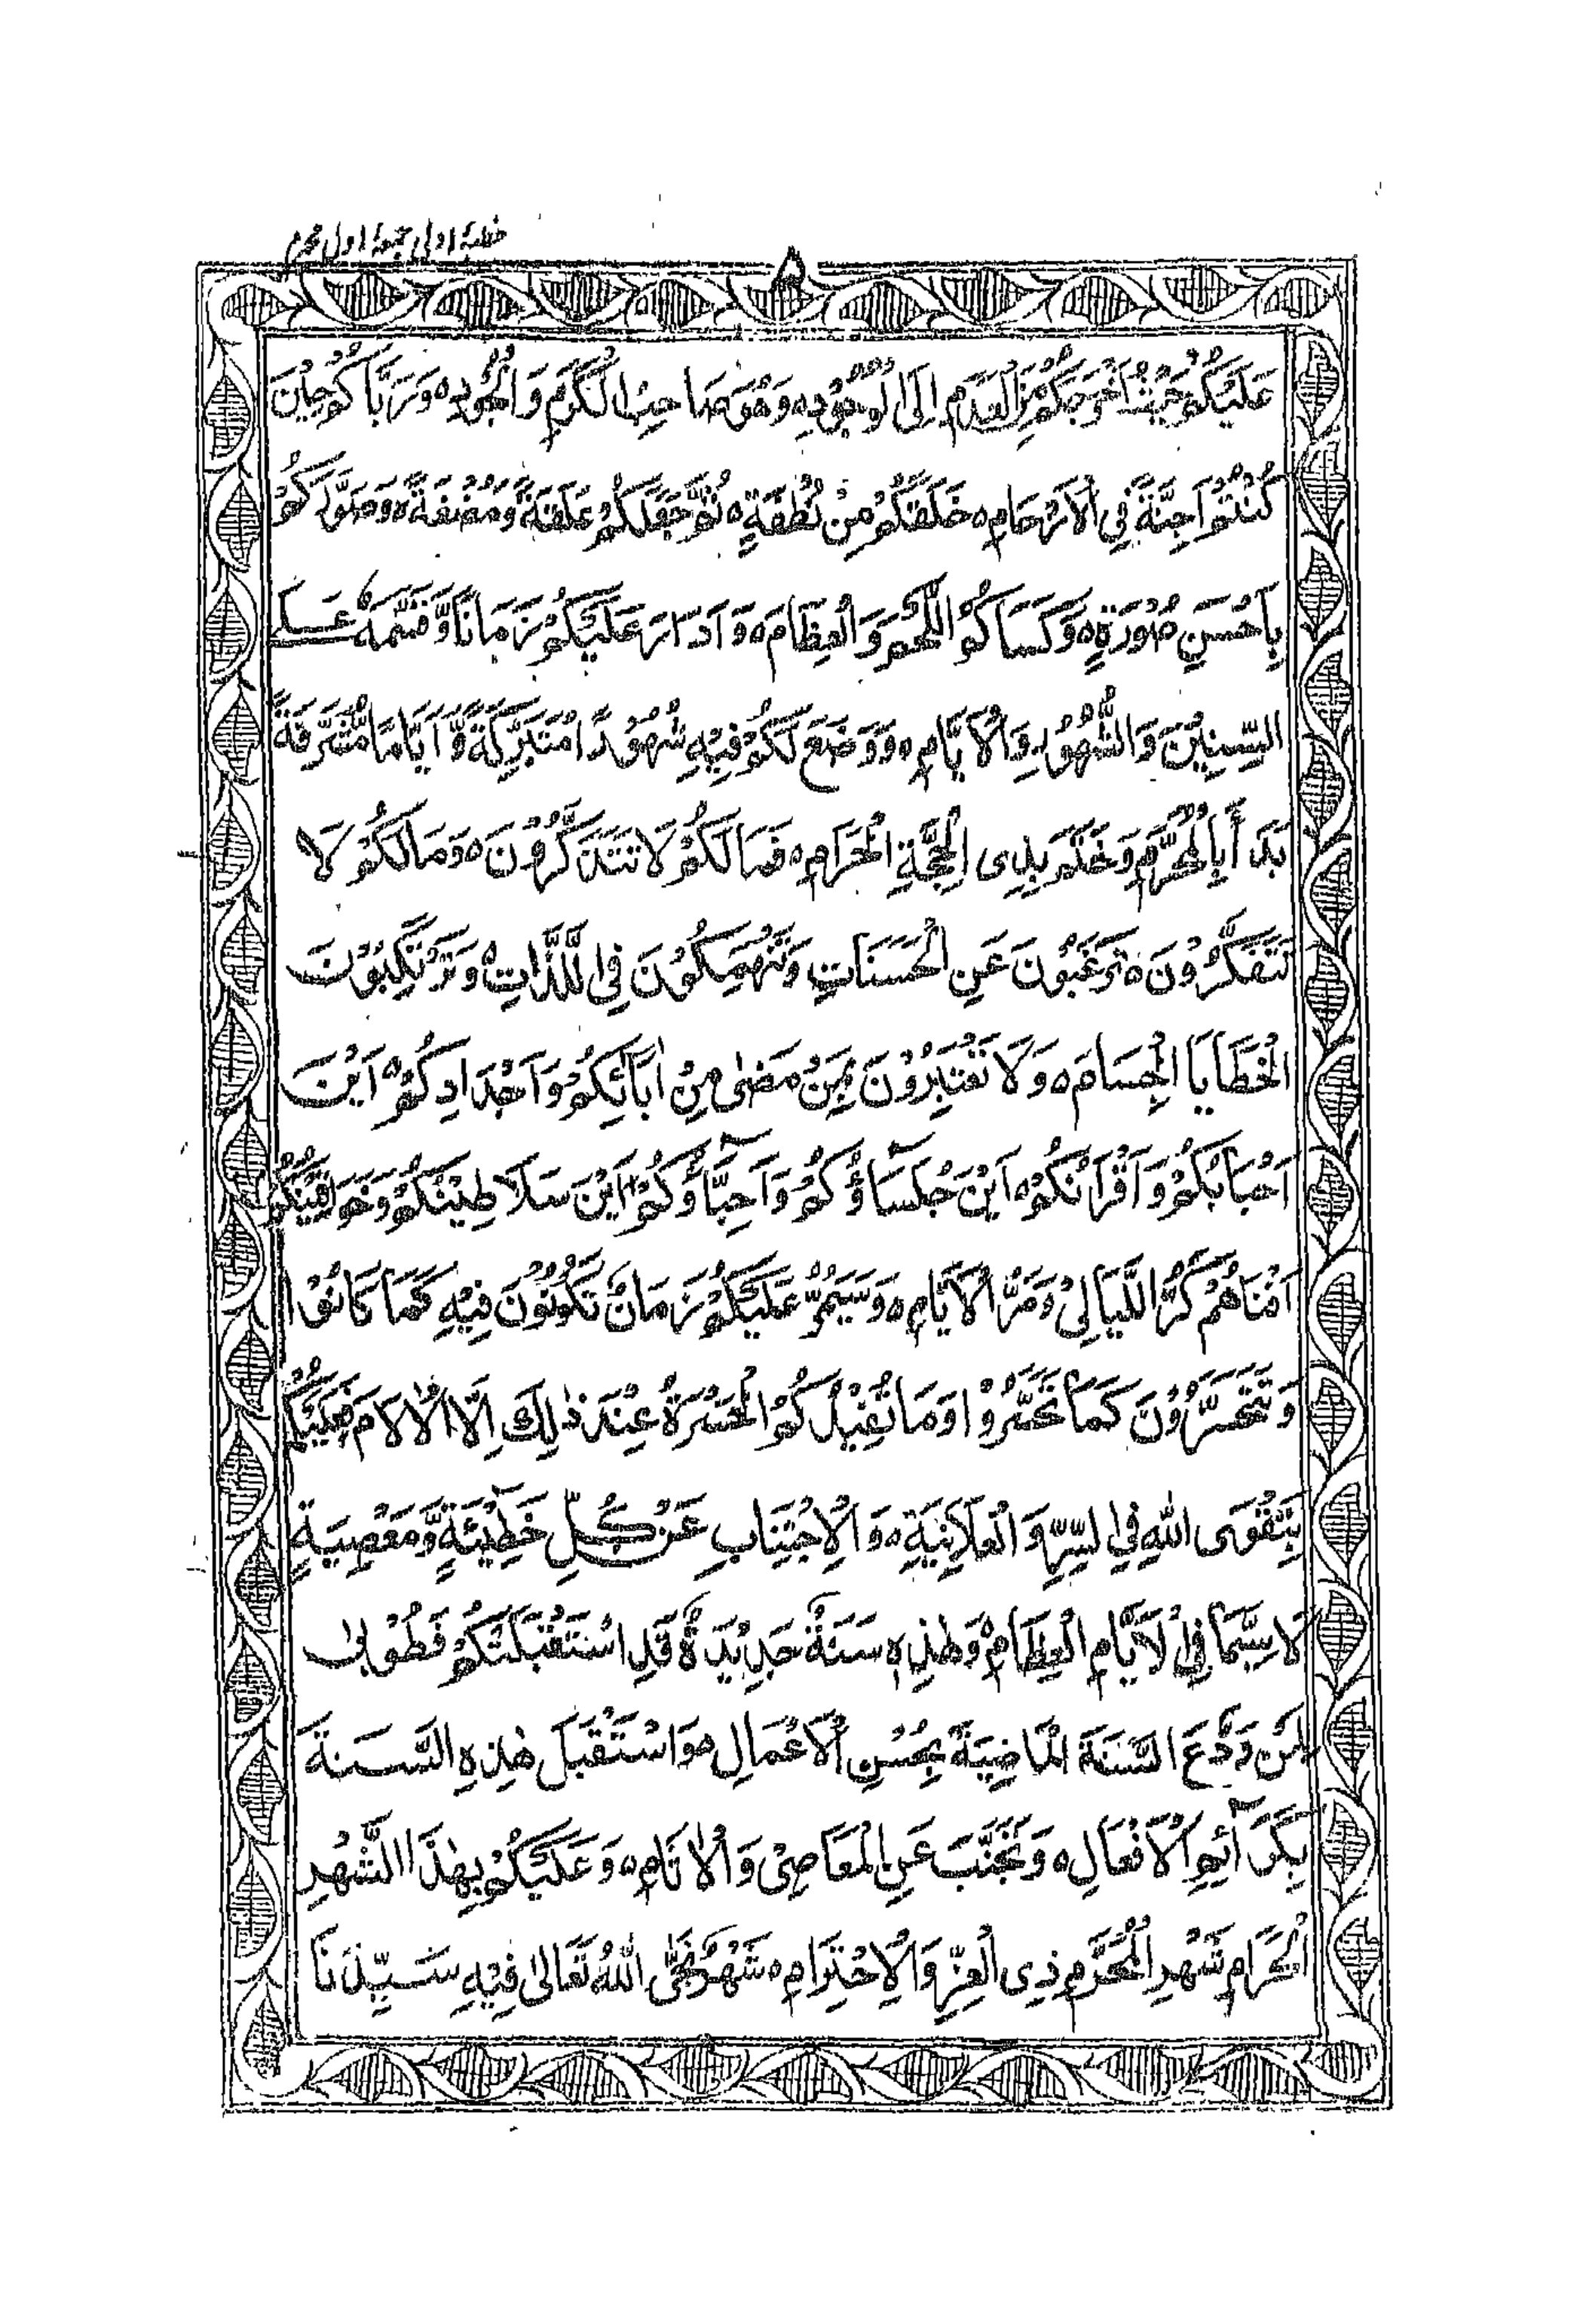 خطبۂ اولی جمعۂ اول محرم
۵
عَلَيْكُمْ حَيْثُ اَخْرَجَكُمْ مِنَ الْعَدَمِ اِلَى الْوُجُوْدِ ہ وَهُوَ صَاحِبُ الْكَرَمِ وَ الْجُوْدِ ہ وَرَبَّاكُمْ حِيْنَ
كُنْتُمْ اَجِنَّةً فِى الْاَرْحَامِ ہ خَلَقَكُمْ مِنْ نُطْفَةٍ ہ ثُمَّ جَعَلَكُمْ عَلَقَةً وَمُضْغَةً ہ وَصَوَّرَكُمْ
بِاَحْسَنِ صُوْرَةٍ ہ وَكَسَاكُمُ اللَّحْمَ وَ الْعِظَامَ ہ وَ اَدَارَ عَلَيْكُمْ زَمَانًا وَّقَسَّمَهٗ عَلَى
السِّنِيْنَ وَ الشُّهُوْرِ وَ الْاَيَّامِ ہ وَ وَضَعَ لَكُمْ فِيْهِ شُهُوْرًا مُتَبَرَّكَةً وَّ اَيَّامًا مُّشَرَّفَةً
بَدَأَ بِالْمُحَرَّمِ وَخَتَمَ بِذِى الْحِجَّةِ الْحَرَامِ ہ فَمَا لَكُمْ لَا تَتَذَكَّرُوْنَ ہ وَمَا لَكُمْ لَا
تَتَفَكَّرُوْنَ ہ تَرْغَبُوْنَ عَنِ الْحَسَنَاتِ وَتَنْهَمِكُوْنَ فِى اللَّذَّاتِ ہ وَ تَرْتَكِبُوْنَ
الْخَطَايَا الْجِسَامَ ہ وَلَا تَعْتَبِرُوْنَ بِمَنْ مَضٰى مِنْ اٰبَائِكُمْ وَ اَجْدَادِكُمْ ہ اَيْنَ
اَحْبَابُكُمْ وَ اَقْرَانُكُمْ ہ اَيْنَ جُلَسَاؤُكُمْ وَ اَحِبَّاؤُكُمْ ہ اَيْنَ سَلَاطِيْنُكُمْ وَخَوَاقِيْنُكُمْ
اَفْنَاهُمْ كَرُّ اللَّيَالِىْ وَ مَرُّ الْاَيَّامِ ہ وَسَيَمُرُّ عَلَيْكُمْ زَمَانٌ تَكُوْنُوْنَ فِيْهِ كَمَا كَانُوْا
وَ تَتَحَسَّرُوْنَ كَمَا تَحَسَّرُوْا وَمَا تُفِيْدُكُمُ الْحَسْرَةُ عِنْدَ ذٰلِكَ اِلَّا الْاٰلَامَ فَعَلَيْكُمْ
بِتَقْوَى اللهِ فِى السِّرِّ وَ الْعَلَانِيَةِ ہ وَ الْاِجْتِنَابِ عَنْ كُلِّ خَطِيْئَةٍ وَّمَعْصِيَةٍ
لَا سِيَّمَا فِى الْاَيَّامِ الْعِظَامِ ہ وَ هٰذِهٖ سَنَةٌ جَدِيْدَةٌ قَدِ اسْتَقْبَلَتْكُمْ فَطُوْبٰى
لِمَنْ وَدَّعَ السَّنَةَ الْمَاضِيَةَ بِحُسْنِ الْاَعْمَالِ ہ وَ اسْتَقْبَلَ هٰذِهِ السَّنَةَ
بِكَرَائِمِ الْاَفْعَالِ ہ وَ تَجَنَّبَ عَنِ الْمَعَاصِىْ وَ الْاٰثَامِ ہ وَ عَلَيْكُمْ بِهٰذَا الشَّهْرِ
الْحَرَامِ شَهْرِ الْمُحَرَّمِ ذِى الْعِزِّ وَ الْاِحْتِرَامِ ہ شَهْرٌ نَجَّى اللهُ تَعَالٰى فِيْهِ سَيِّدَنَا